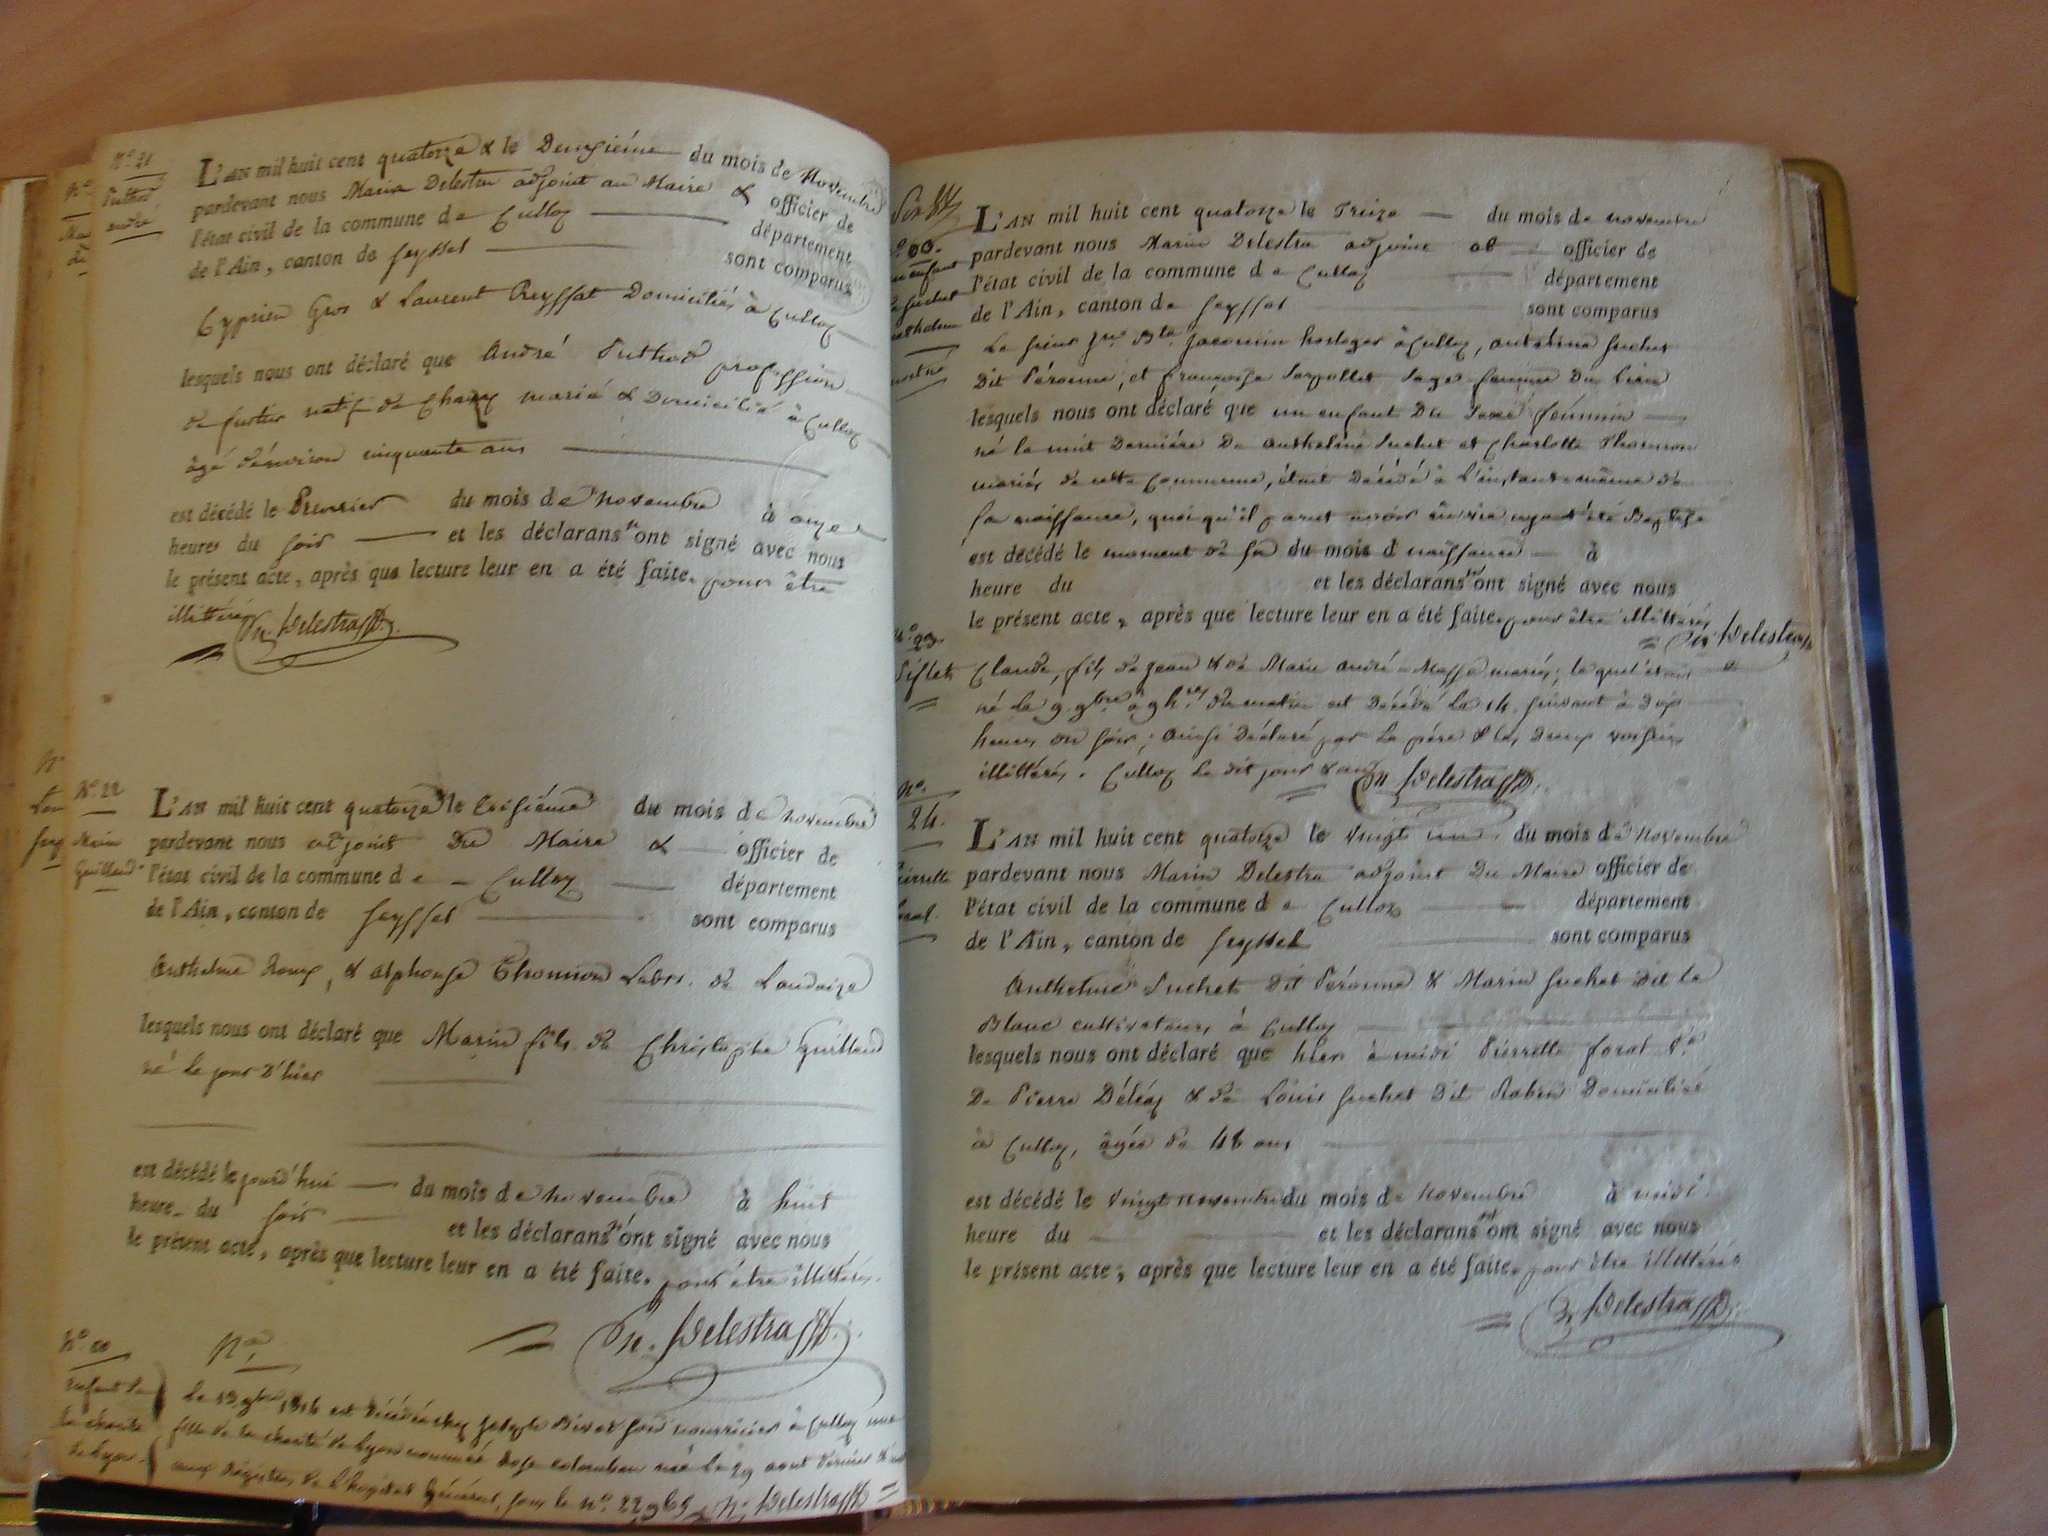 N.° 21
Puthod
andré
L'AN mil huit cent quatorze & le Deuxième du mois de Novembre
pardevant nous Marin Delestra adjoint au Maire & officier de
l'état civil de la commune de Culloz département
de l'Ain, canton de Seyssel sont comparus
Cyprien Gros & Laurent Reyssat Domiciliés à Culloz
lesquels nous ont déclaré que André Puthod profession
de natif de Chanaz marié & Domicilié à Culloz
âgé d'environ cinquante ans
est décédé le Premier du mois de Novembre à onze
heures du soir et les déclarans n'ont signé avec nous
le présent acte, après que lecture leur en a été faite. pour être
illittérés M. Delestra
N.° 22
Marin
Guilland
L'AN mil huit cent quatorze le treizième du mois de novembre
pardevant nous adjoint Du Maire & officier de
l'état civil de la commune de Culloz département
de l'Ain, canton de Seyssel sont comparus
Anthelme Roux, & alphonse Thomion Labrs. de Landaize
lesquels nous ont déclaré que Marin fils de Christophe Guilland
né le jour D'hier
est décédé le jourd'hui du mois de novembre à huit
heure du soir et les déclarans n'ont signé avec nous
le présent acte, après que lecture leur en a été faite. pour être illittérés.
M. Delestra
N.° 00
enfant de
la charité
de Lyon
Le 13 9bre 1814 est décédé chez Joseph Bivet son nourricier à Culloz une
fille de la charité de Lyon nommée Rose colomban née le 29 aout dernier
aux Régistres de l'hopital Général, sous le N.° 22,965 M. Delestra
L'AN mil huit cent quatorze le Treize du mois de novembre
pardevant nous Marin Delestra adjoint officier de
l'état civil de la commune de Culloz département
de l'Ain, canton de Seyssel sont comparus
Le sieur Jn. Bte. Jacquemin horloger à Culloz, anthelme Suchet
Dit Péronne, et françoise Serpollet sage femme Du lieu
lesquels nous ont déclaré que un enfant Du Sexe féminin
né la nuit Dernière De anthelme Suchet et Charlotte Thomion
mariés de cette Commune, étoit Décédé à L'instant même de
sa naissance, quoi qu'il parut avoir eu vie ayant été Baptisé
est décédé le moment de sa du mois d naissance à
heure du et les déclarans n'ont signé avec nous
le présent acte, après que lecture leur en a été faite. pour être illittérés
M. Delestra
N.° 23.
Pistet Claude, fils de Jean & de Marie André-Masse mariés; lequel étoit
né le 9. 9bre à 9 h.res du matin est décédé le 14 suivant à dix
heures du soir; Ainsi Déclaré par le père & les Deux voisins
illittérés. Culloz le dit jour & an M. Delestra
N.°
24.
Pierrette
forat.
L'AN mil huit cent quatorze le vingt un du mois de Novembre
pardevant nous Marin Delestra adjoint Du Maire officier de
l'état civil de la commune de Culloz département
de l'Ain, canton de Seyssel sont comparus
Anthelme Suchet Dit Péronne & Marin Suchet Dit le
Blanc cultivateurs à Culloz
lesquels nous ont déclaré que hier à midi Pierrette forat
De Pierre Déléaz & de Louis Suchet Dit Robin Domiciliée
à Culloz, âgée de 48 ans
est décédé le vingt novembre du mois de Novembre à midi
heure du et les déclarans n'ont signé avec nous
le présent acte, après que lecture leur en a été faite. pour être illittérés
M. Delestra